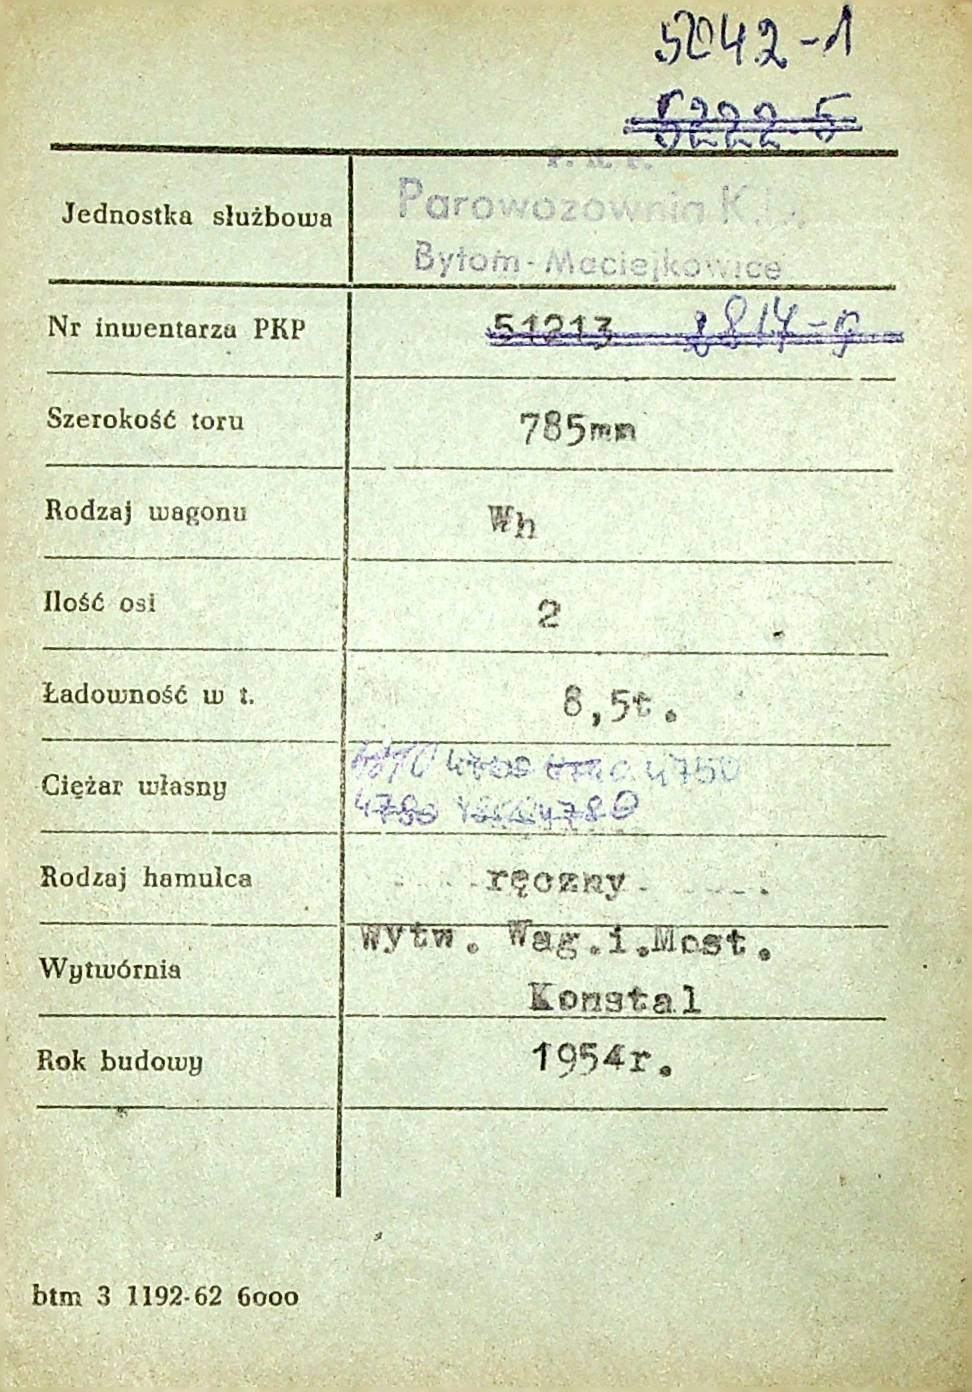 5042-1
5222-5
P. K. P.
Jednostka służbowa Parowozownia K.D.
Bytom-Maciejkowice
Nr inwentarza PKP 51213
Szerokość toru 785mm
Rodzaj wagonu Wh
Ilość osi 2
Ładowność w t. 8,5t.
Ciężar własny 4750
4780 4780
Rodzaj hamulca ręczny
Wytw. Wag.i.Most.
Wytwórnia Konstal
Rok budowy 1954r.
btm 3 1192-62 6000